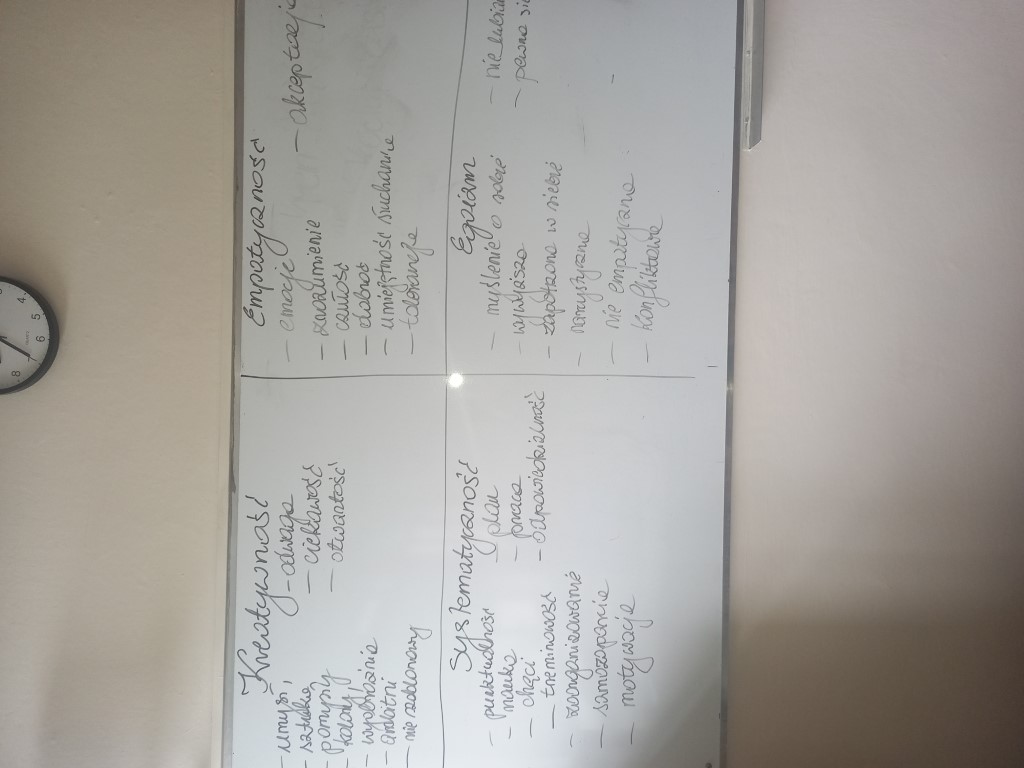 Kreatywność
- umysł,
- sztuka
- pomysły
- wyobraźnia
- ambitni
- nie szablonowy
- odwaga
- ciekawość
- otwartość
Empatyczność
- emocje
- zrozumienie
- czułość
- dobroć
- umiejętność suchanie
- tolerancja
- akceptacj
Systematyczność
- punktualność
- nauka
- chęci
- treminowość
- zoorganizowanie
- samozaparcie
- motywacja
- plan
- praca
- odpowiedzialność
Egoizm
- myślenie o sobie
- zapatrzona w siebie
- narcystyczna
- nie ematyczna
- konfliktowa
- nie lubian
- pewna si
4
5
6
7
8